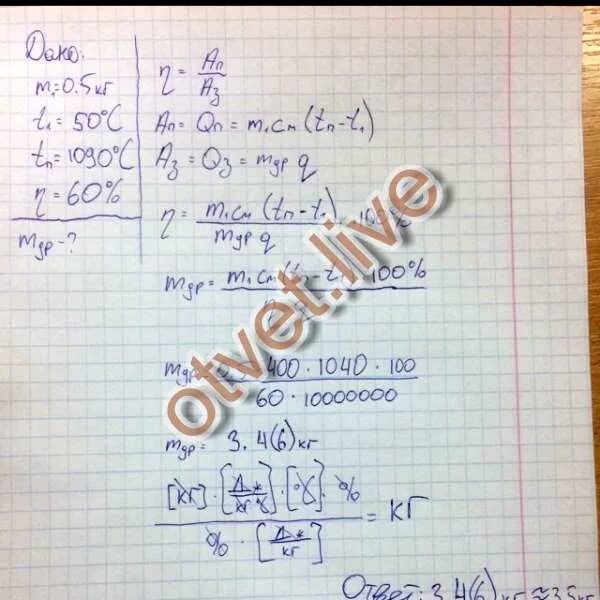 Дано:
m₁=0.5кг
t₁=50°C
tп=1090°C
η=60%
mдр-?
η = Aп/Aз
Aп = Qп = m₁cм(tп-t₁)
Aз = Qз = mдр q
η = m₁cм(tп-t₁)/mдр q · 100%
mдр = m₁cм(tп-t₁) 100%
mдр = 400·1040·100/60·10000000
mдр = 3.4(6) кг
[кг]·[Дж/кг°C]·[°C]·%/%·[Дж/кг] = кг
Ответ: 3.4(6) кг ≈ 3.5кг
otvet.live